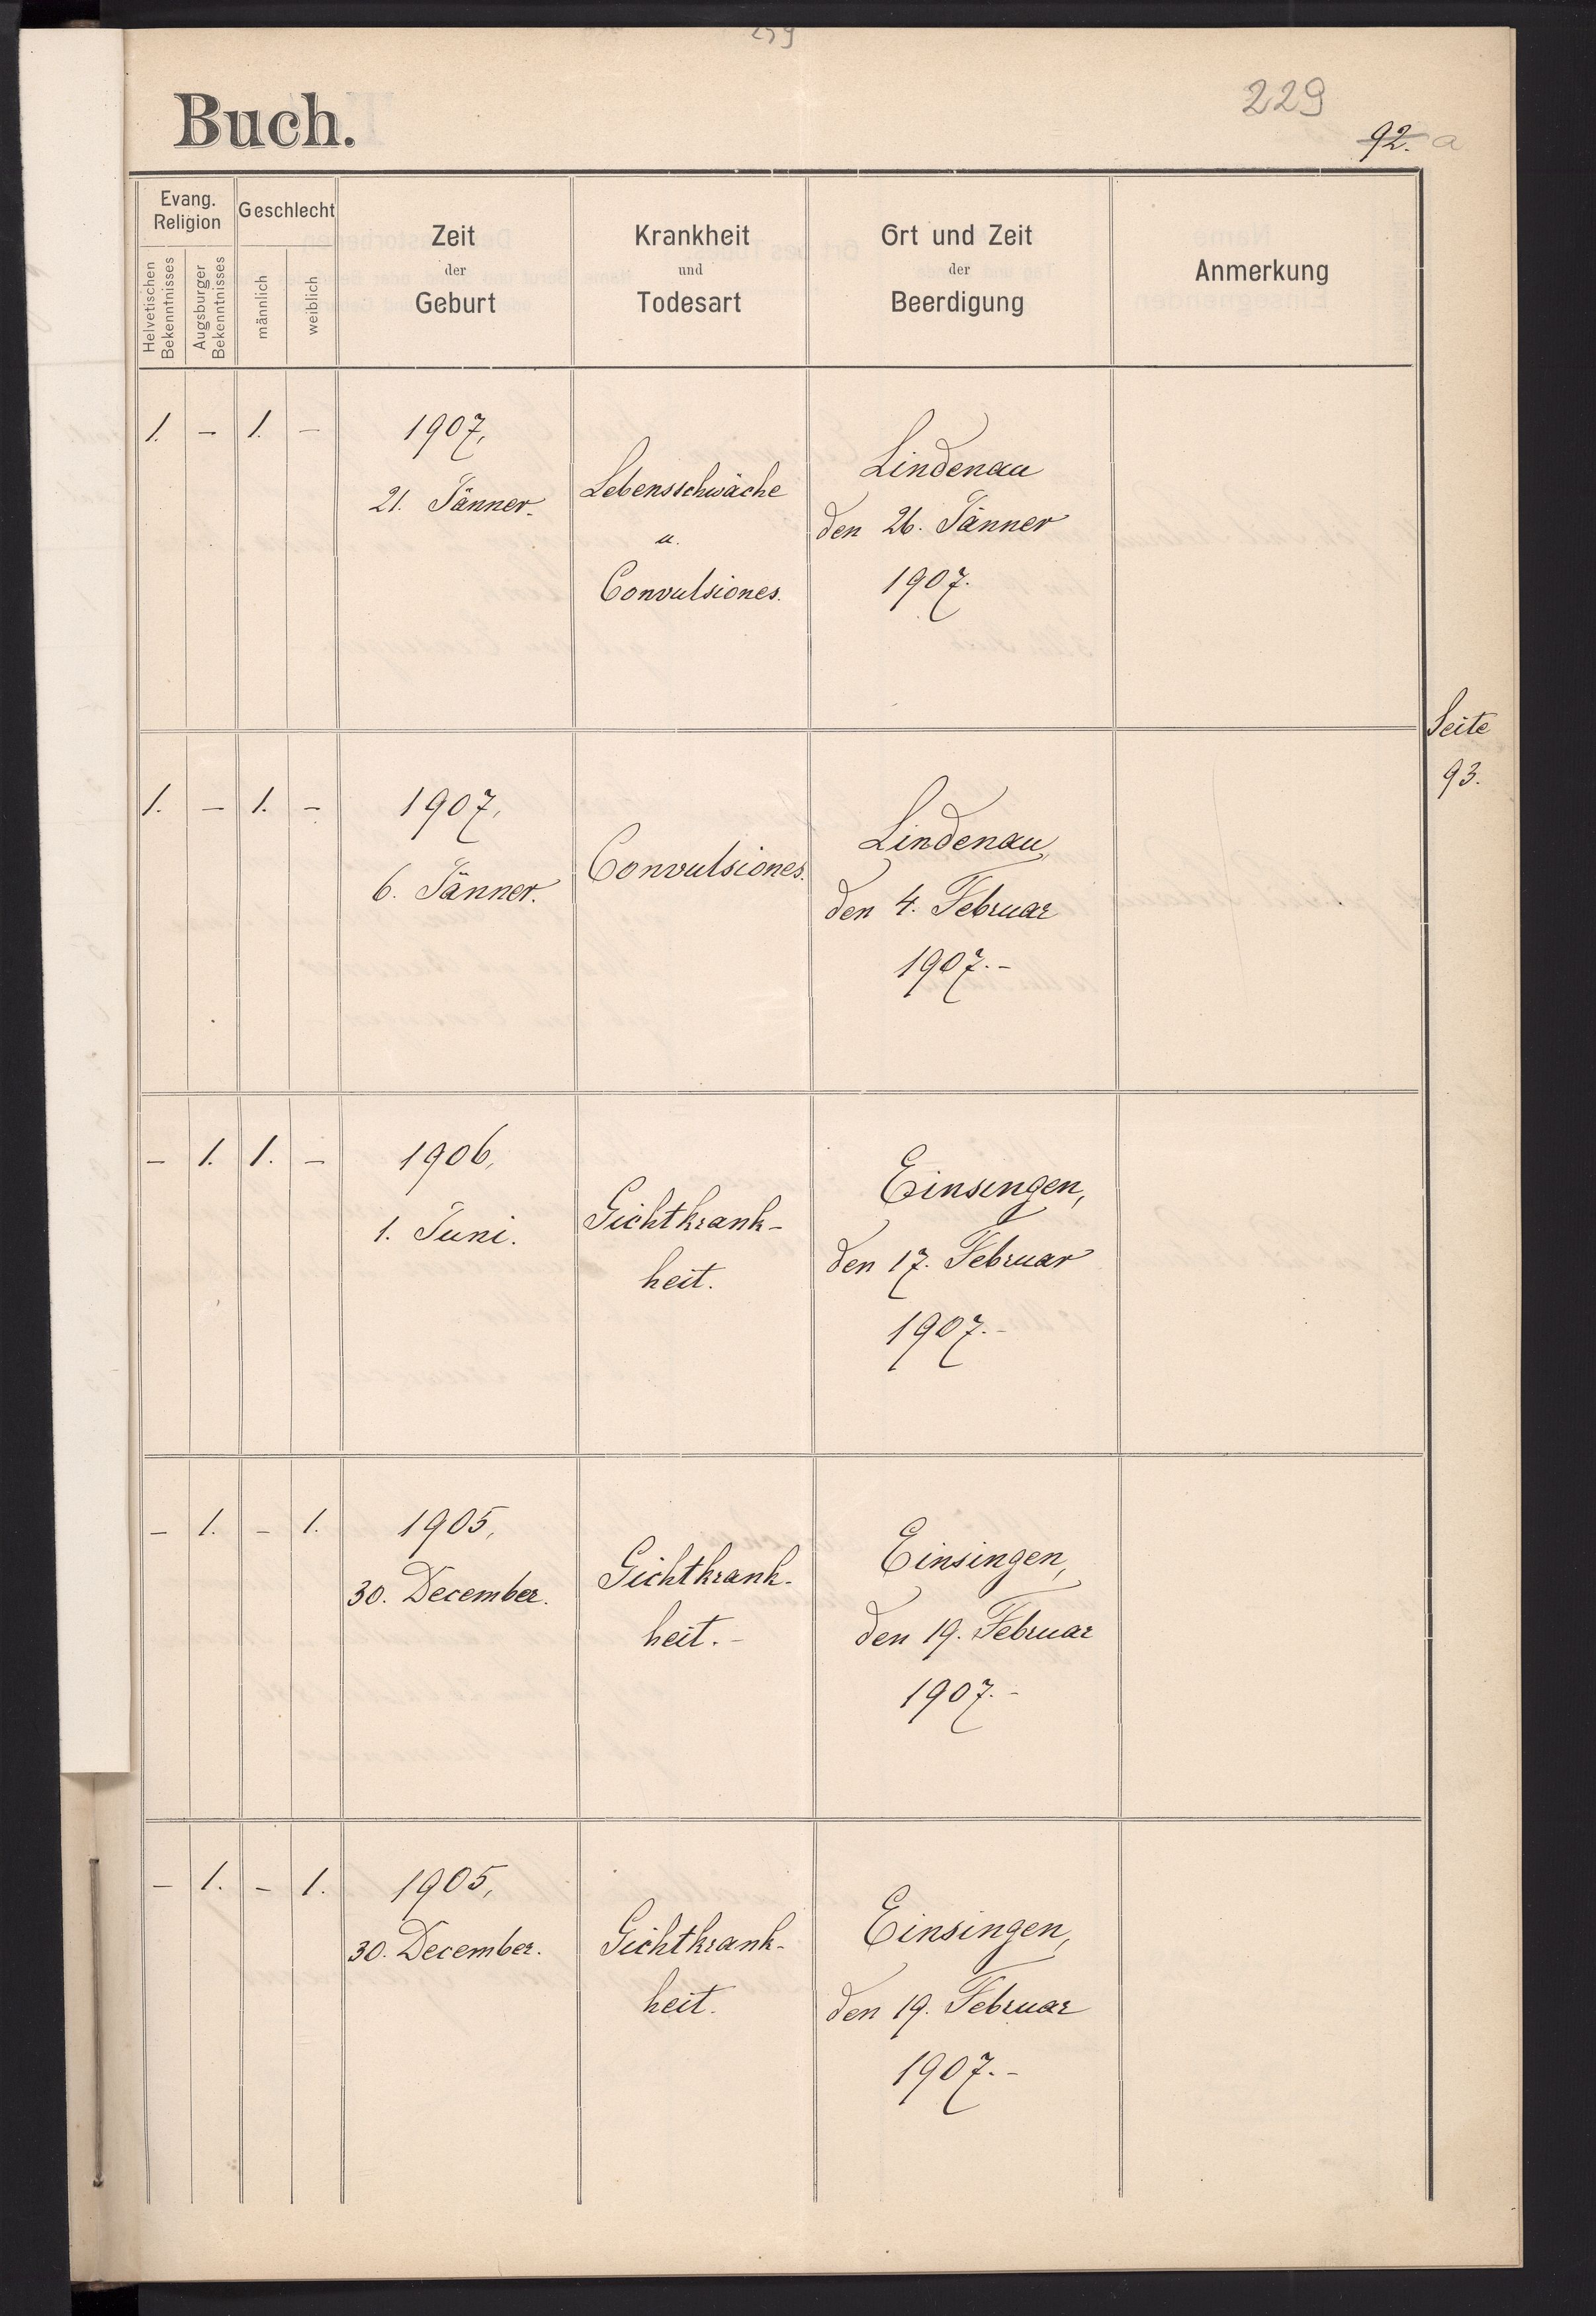 229
92. a
Buch.
Evang. Religion
Geschlecht
Helvetischen Bekenntnisses
Augsburger Bekenntnisses
männlich
weiblich
Zeit
der
Geburt
Krankheit
und
Todesart
Ort und Zeit
der
Beerdigung
Anmerkung
1. - 1. -
1907,
21. Jänner.
Lebensschwäche
u.
Convulsiones.
Lindenau
den 26. Jänner
1907.
Seite
93.
1. - 1. -
1907,
6. Jänner.
Convulsiones.
Lindenau,
den 4. Februar
1907.-
- 1. 1. -
1906,
1. Juni.
Gichtkrank-
heit.
Einsingen,
den 17. Februar
1907.-
- 1. - 1.
1905,
30. December.
Gichtkrank-
heit.-
Einsingen,
den 19. Februar
1907.-
- 1. - 1.
1905,
30. December.
Gichtkrank-
heit.
Einsingen,
den 19. Februar
1907.-